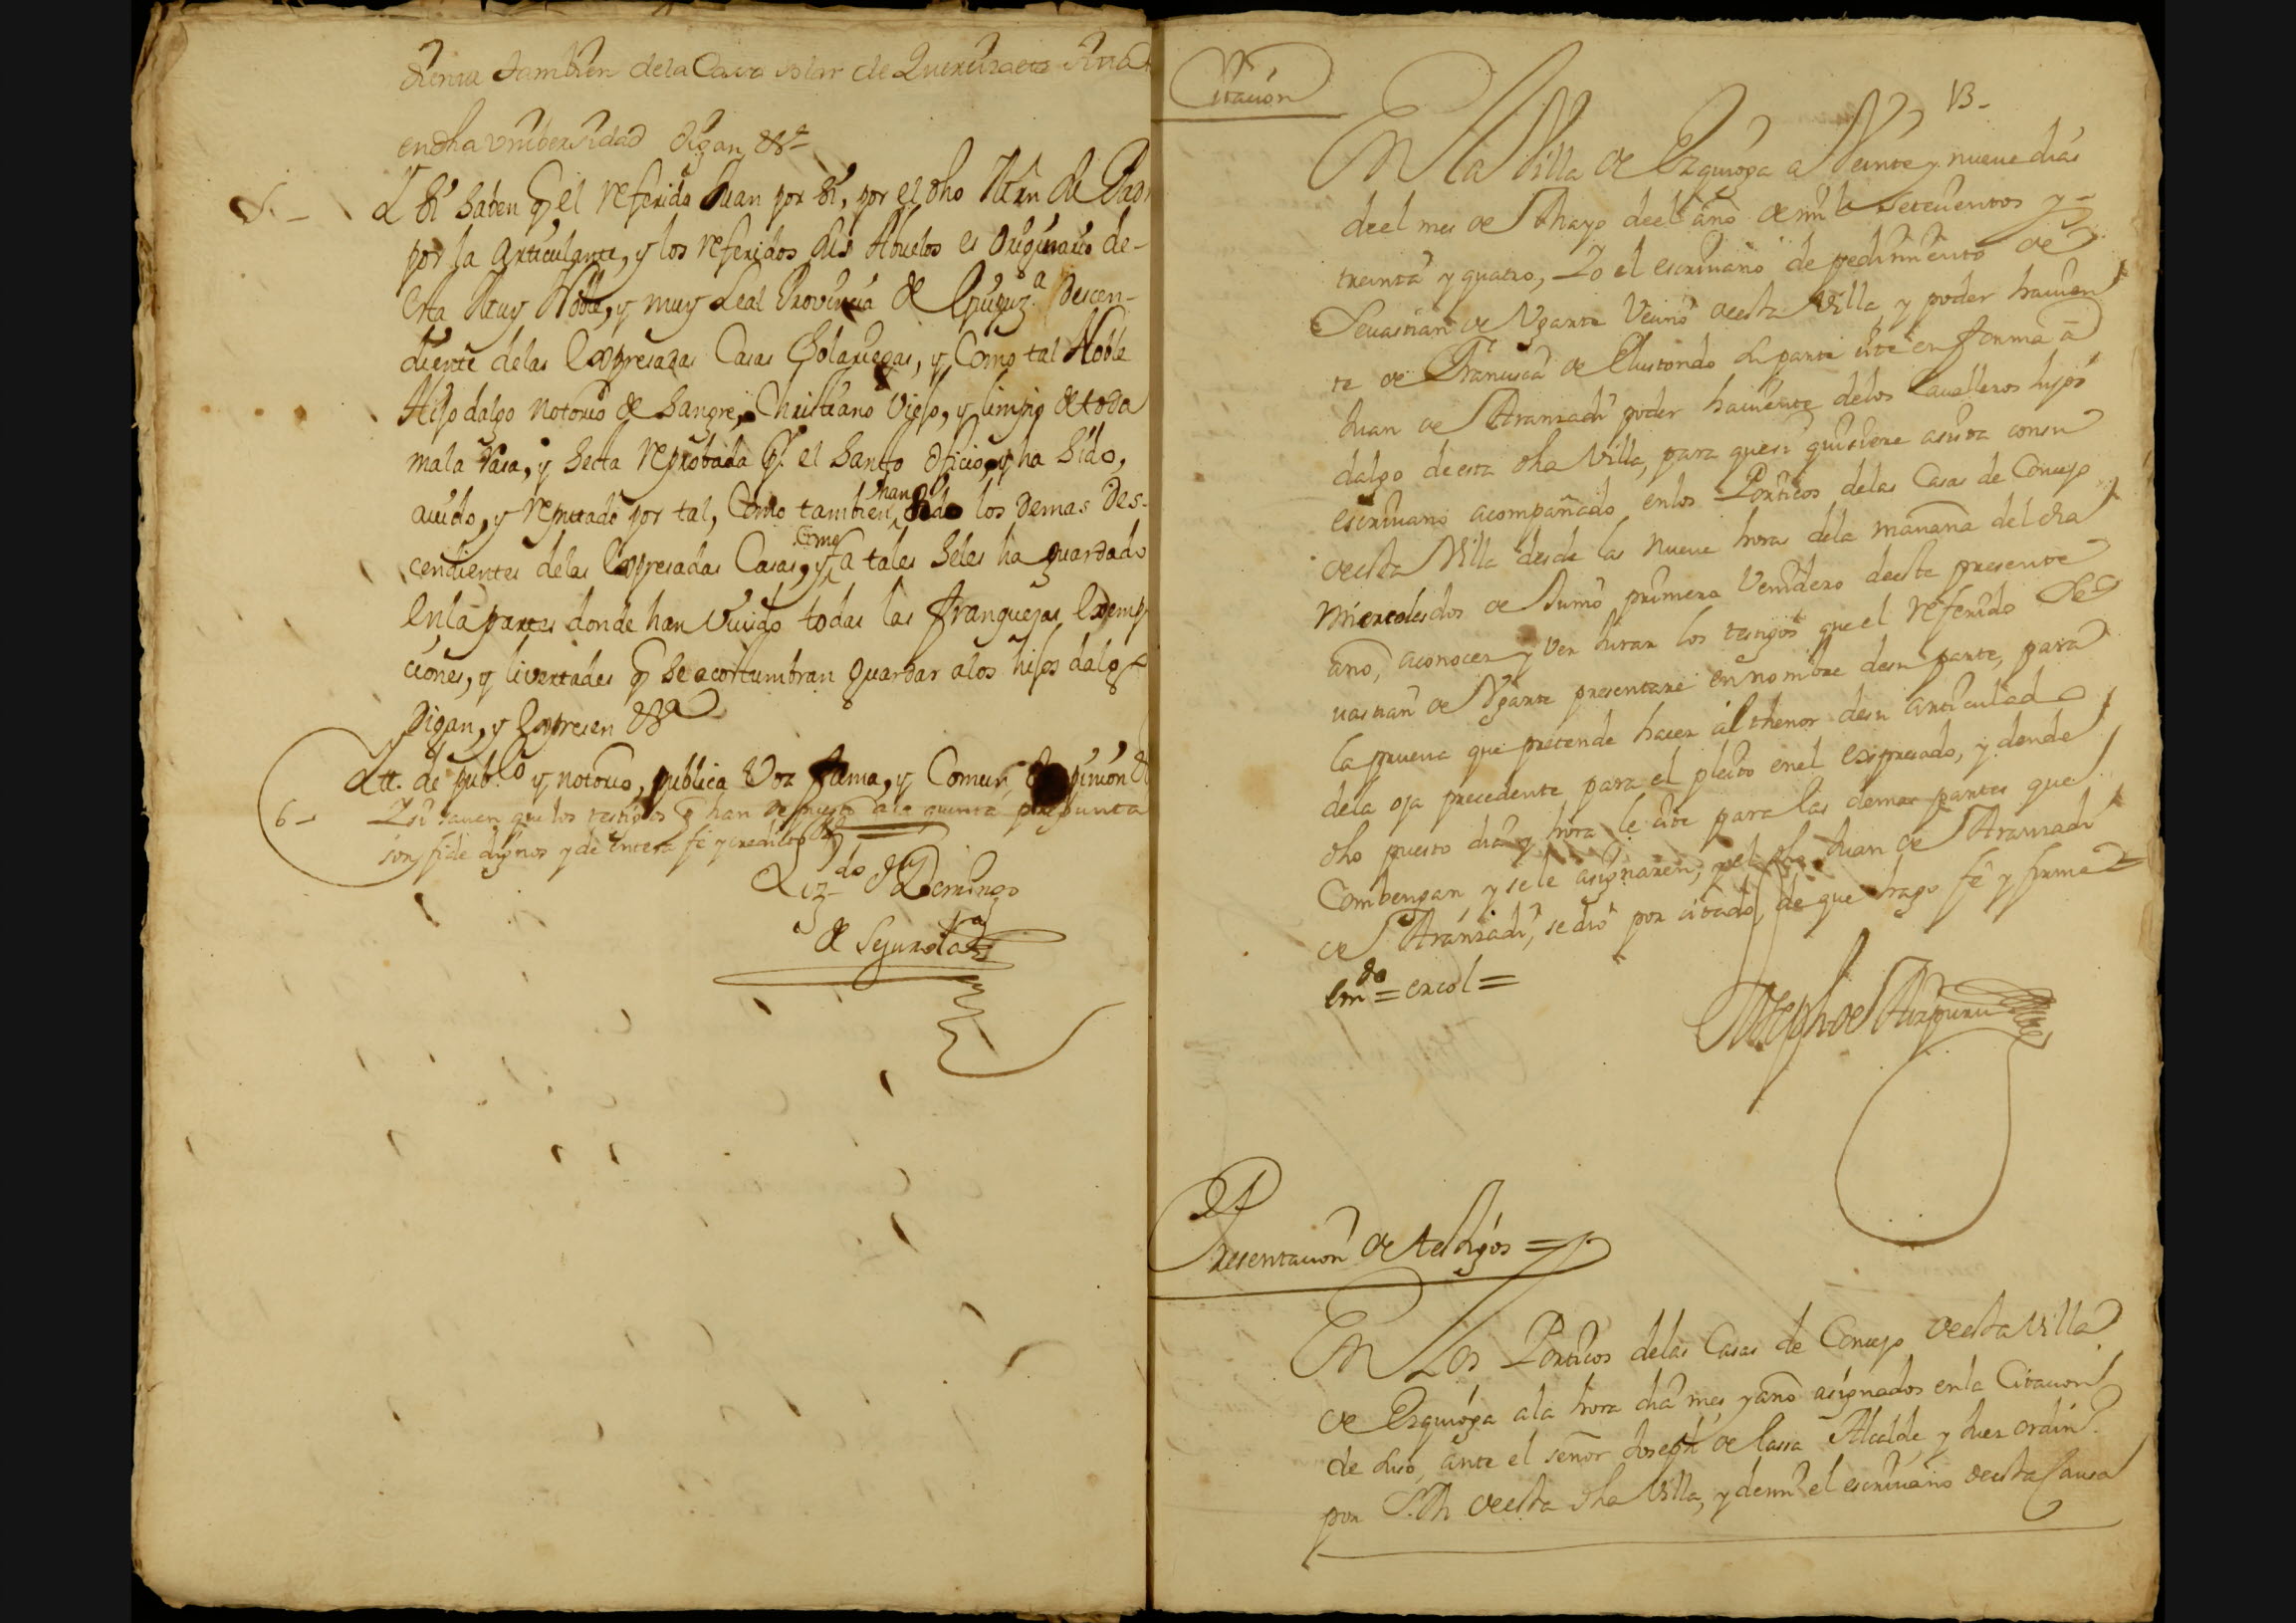 diente tambien dela Casa solar de Querexazu sita
en dha vniberSidad digan &ª
5. - Y Si Saben q̃ el referido Juan por Si, por el dho Mrn de
por la articulante, y los referidos sus Abuelos es Originario de-
esta Muy Noble, y muy Leal Provincia de Guipuzª Descen-
diente delas Expresadas Casas Solariegas, y Como tal Noble
Hijo dalgo notorio de Sangre, Christiano Viejo, y limpio de toda
mala rasa, y Secta reprobada p.r el Santo Oficio, y ha Sido,
auido, y reputado por tal, Como tambien han Sido los Demas Des-
cendientes delas Expresadas Casas, y Como a tales Seles ha guardado
En la partes donde han Viuido todas las franquezas Exemp
ciones, y livertades q̃ Se acostumbran guardar alos hijos dalgo
Digan, y Expresen &ª
Ytt. de pub.co y notorio, publica Voz fama, y Comun Opinion
6 - Y si sauen que los testigos q̃ han depuesto ala quinta pregunta
son fide dignos y de entera fe y credito &ª
Liz.do Domingo
de Segurola
Citación
13-
En la Villa de Ezquioga a Veinte y nueue dias
deel mes de Mayo deel año de mil Setecientos y-
treinta y quatro, Yo el escriuano de pedimiento de
Seuastian de Vgarte Vecino deesta Villa, y poder hauien
te de Francisca de Elustondo su parte cite en forma a
Juan de Aranzadi poder hauiente delos Caualleros hijos
dalgo de esta dha Villa, para que si quisiere asista consu
escriuano acompañado, enlos Porticos delas Casas de Concejo
deesta Villa desde las nueue horas dela mañana del dia
miercoles dos de Junio primero Venidero deeste presente
año, aconocer y Ver Jurar los testigos que el referido Se
uastian de Vgarte presentare en nombre desu parte, para
la prueua que pretende hacer al thenor desu articulado
dela oja precedente para el pleito enel expresado, y donde
dho puesto dia y hora le cite para las demas partes que
Combengan y se le asignaren, y el dho Juan de Aranzadi
de Aranzadi, se dio por citado, de que hago fe y firme=
Em.do = ercol =
Joseph de Aizpuru
Presentacion de testigos =
En Los Porticos delas Casas de Concejo deesta Villa
de Ezquioga ala hora dia mes y año asignados enla Citacion
de suso, ante el señor Joseph de Lassa Alcalde y Juez ordin.º
por S.M. deesta dha Villa, y de mi el escriuano deesta Causa